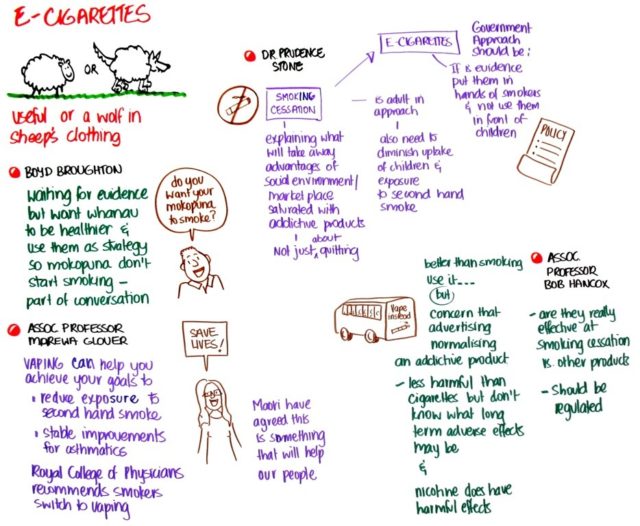 E-CIGARETTES
OR
Useful or a wolf in
sheep's clothing
BOYD BROUGHTON
waiting for evidence
but want whanau
to be healthier &
use them as strategy
so mokopuna don't
start smoking –
part of conversation
do you
want your
mokopuna
to smoke?
ASSOC PROFESSOR
MAREWA GLOVER
VAPING can help you
achieve your goals to
reduce exposure to
second hand smoke
stable improvements
for asthmatics
Royal College of Physicians
recommends smokers
switch to vaping
SAVE
LIVES!
Maori have
agreed this
is something
that will help
our people
DR PRUDENCE
STONE
SMOKING
CESSATION
explaining what
will take away
advantages of
social environment/
market place
saturated with
addictive products
Not just about quitting
is adult in
approach
also need to
diminish uptake
of children &
exposure
to second hand
smoke
E-CIGARETTES
Government
Approach
should be:
If is evidence
put them in
hands of smokers
& not use them
in front of
children
POLICY
Vape
instead
better than smoking
use it....
but
concern that
advertising
normalising
an addictive product
- less harmful than
cigarettes but don't
know what long
term adverse effects
may be
&
nicotine does have
harmful effects
ASSOC.
PROFESSOR
BOB HANCOX
- are they really
effective at
smoking cessation
vs. other products
- Should be
regulated